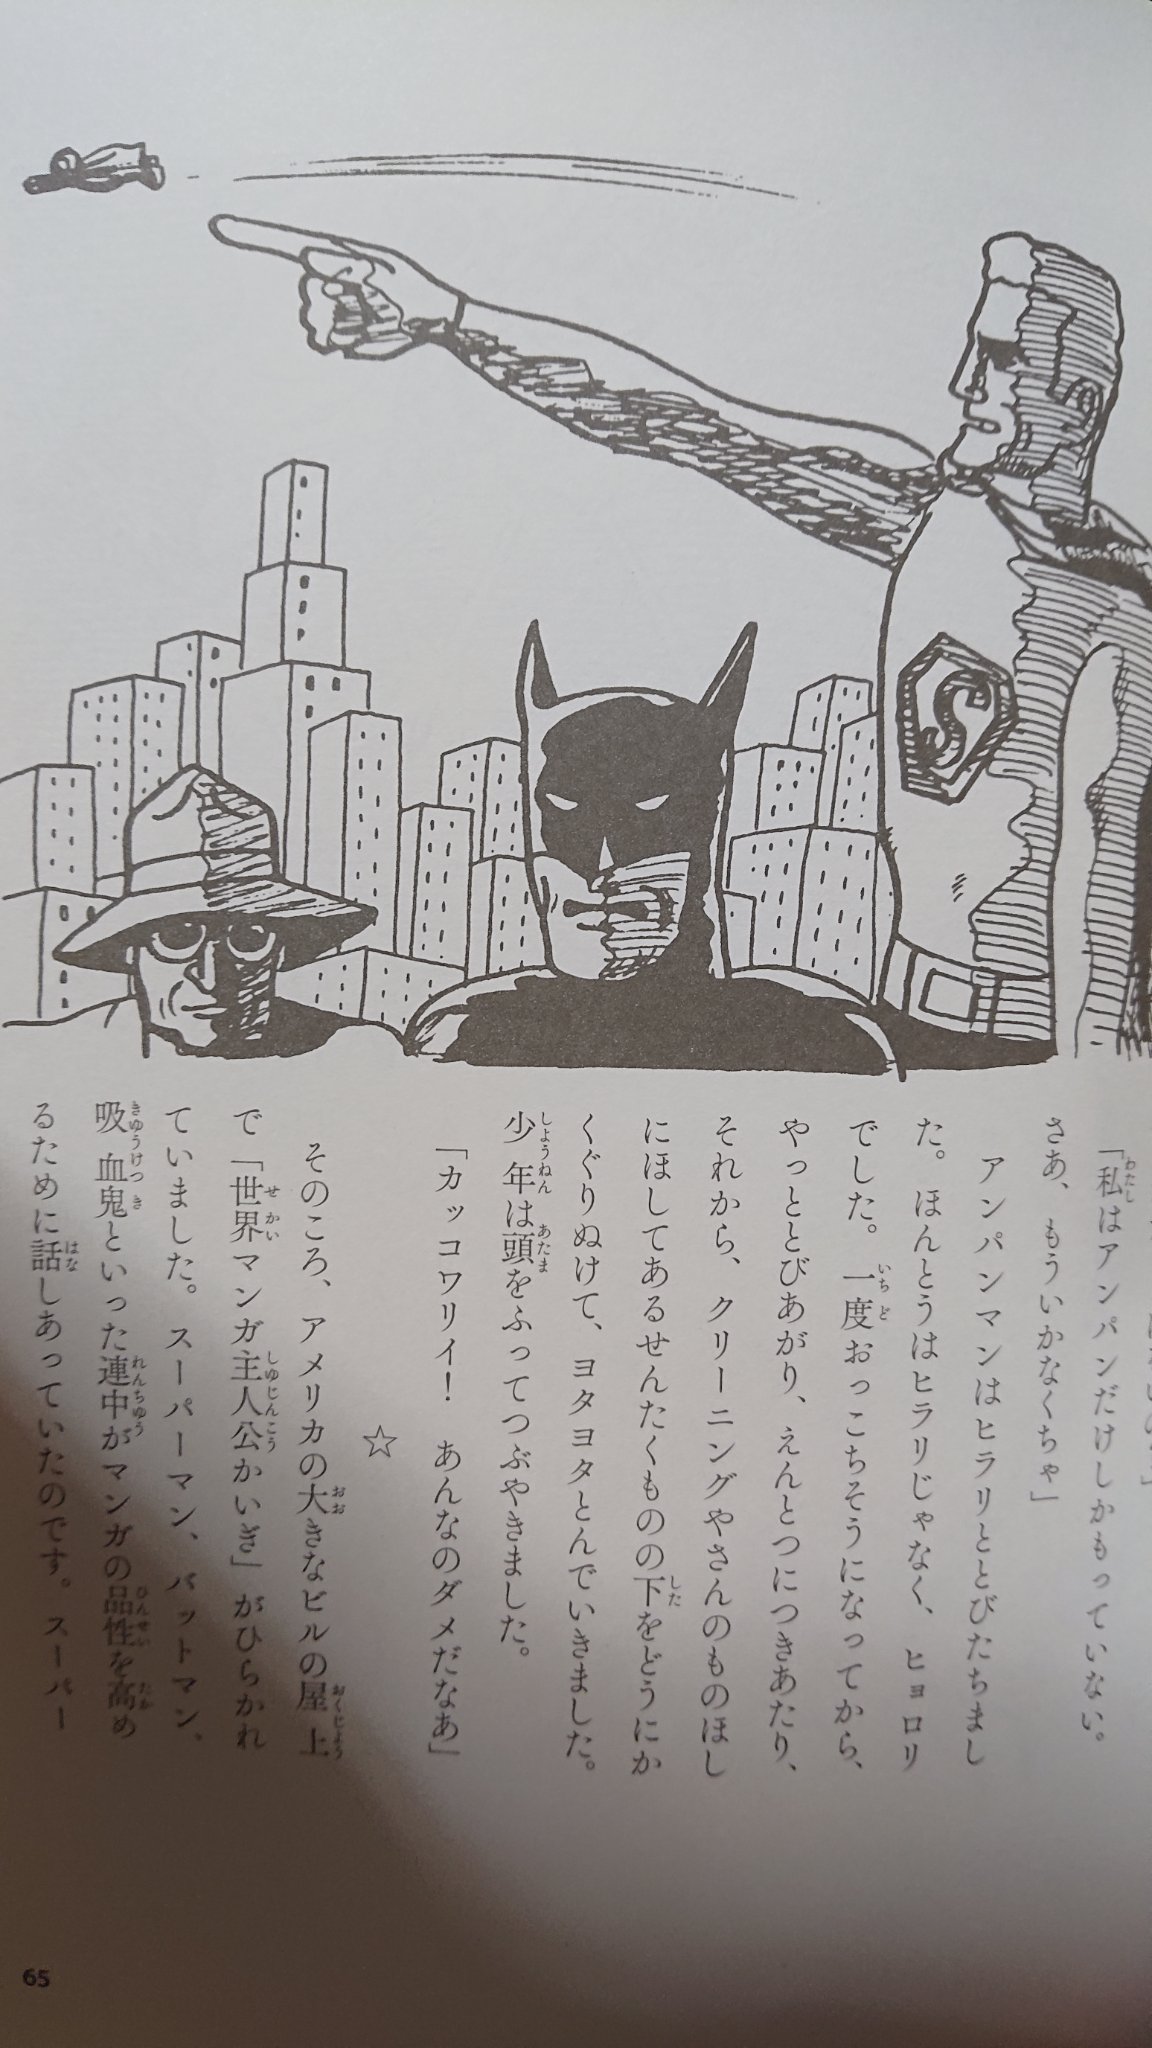 「私はアンパンだけしかもっていない。
さあ、もういかなくちゃ」
アンパンマンはヒラリととびたちまし
た。ほんとうはヒラリじゃなく、ヒョロリ
でした。一度おっこちそうになってから、
やっととびあがり、えんとつにつきあたり、
それから、クリーニングやさんのものほし
にほしてあるせんたくものの下をどうにか
くぐりぬけて、ヨタヨタとんでいきました。
少年は頭をふってつぶやきました。
「カッコワリイ! あんなのダメだなあ」
☆
そのころ、アメリカの大きなビルの屋上
で「世界マンガ主人公かいぎ」がひらかれ
ていました。スーパーマン、バットマン、
吸血鬼といった連中がマンガの品性を高め
るために話しあっていたのです。スーパー
S
65